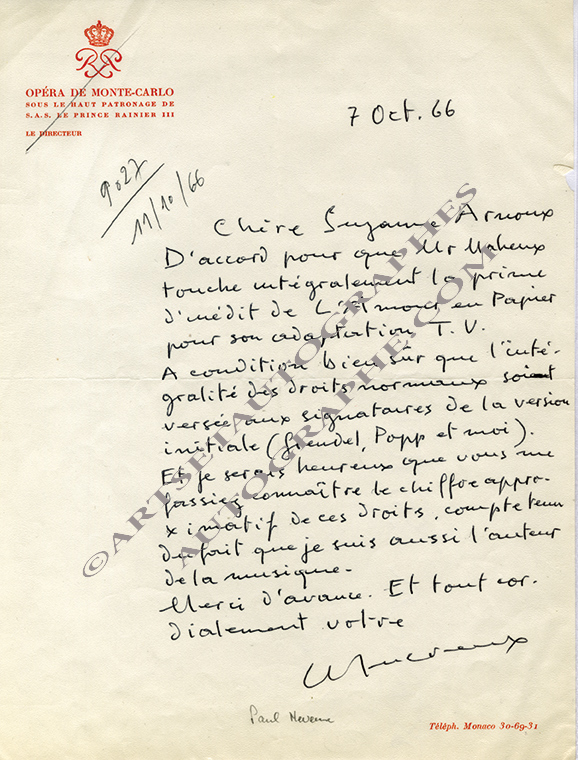 OPÉRA DE MONTE-CARLO
SOUS LE HAUT PATRONAGE DE
S.A.S. LE PRINCE RAINIER III
LE DIRECTEUR
7 Oct. 66
9027
11/10/66
Chère Suzanne Arnoux
D'accord pour que Mr Maheux
touche intégralement la prime
d'inédit de L'Amour en Papier
pour son adaptation T.V.
A condition bien sûr que l'inté-
gralité des droits normaux soient
versée aux signataires de la version
initiale (Grendel, Popp et moi).
Et je serais heureux que vous me
fassiez connaître le chiffre appro-
ximatif de ces droits, compte tenu
du fait que je suis aussi l'auteur
de la musique.
Merci d'avance. Et tout cor-
dialement votre
Paul
Téléph. Monaco 30-69-31
©ARTSETAUTOGRAPHES
AUTOGRAPHE.COM